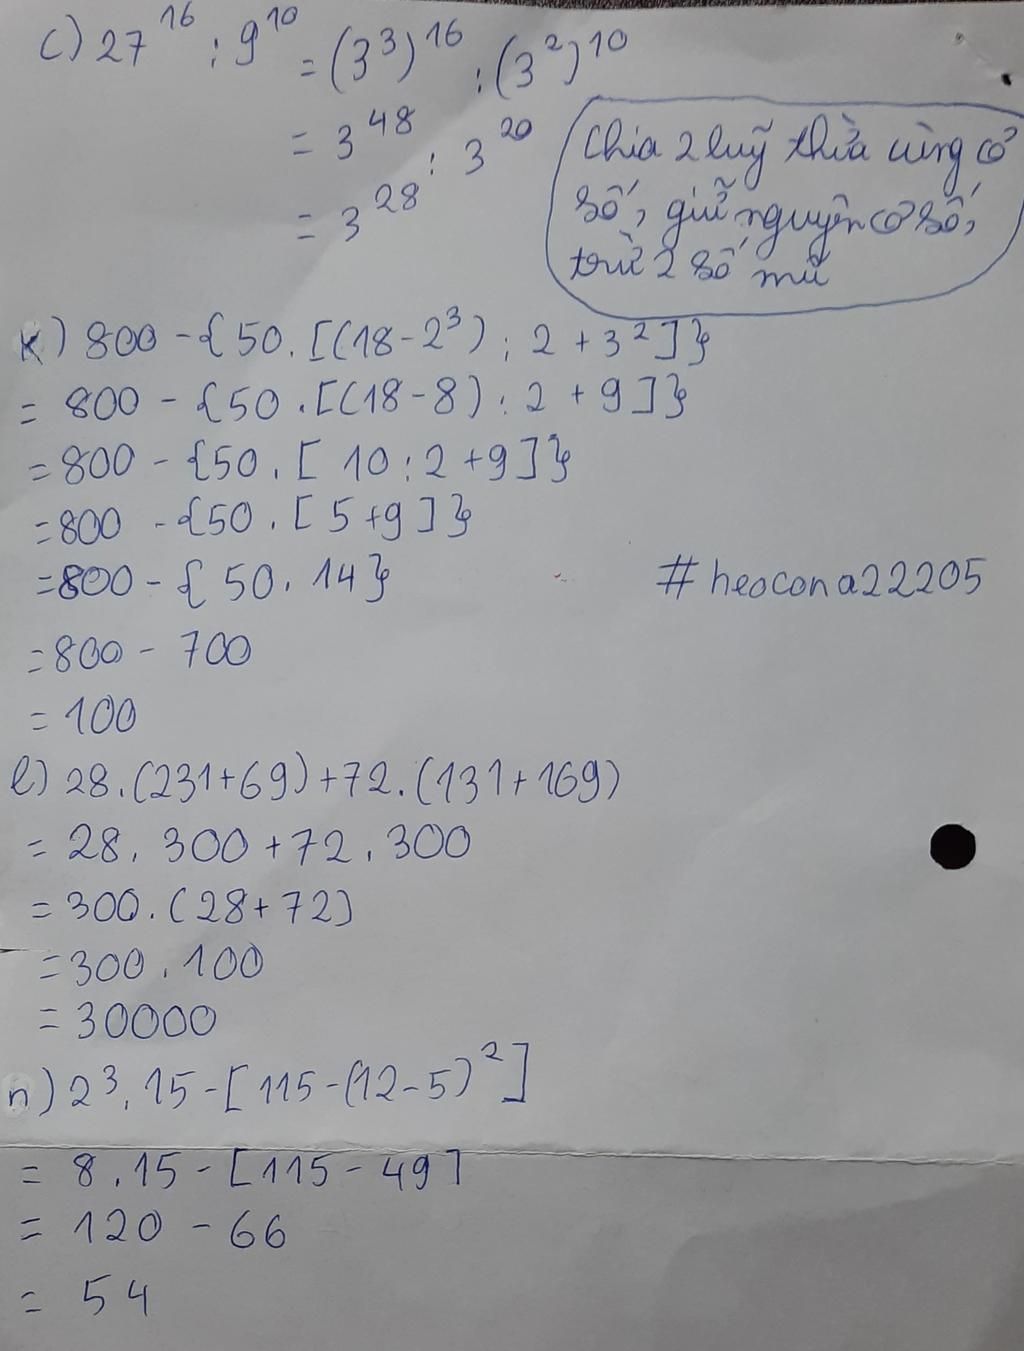 c) 27^16 : 9^10 = (3^3)^16 : (3^2)^10
= 3^48 : 3^20
= 3^28
Chia 2 luỹ thừa cùng cơ
số, giữ nguyên cơ số,
trừ 2 số mũ
k) 800 - {50 . [(18 - 2^3) : 2 + 3^2]}
= 800 - {50 . [(18 - 8) : 2 + 9]}
= 800 - {50 . [10 : 2 + 9]}
= 800 - {50 . [5 + 9]}
= 800 - {50 . 14}
#heocona22205
= 800 - 700
= 100
l) 28 . (231 + 69) + 72 . (131 + 169)
= 28 . 300 + 72 . 300
= 300 . (28 + 72)
= 300 . 100
= 30000
n) 2^3 . 15 - [115 - (12 - 5)^2]
= 8 . 15 - [115 - 49]
= 120 - 66
= 54